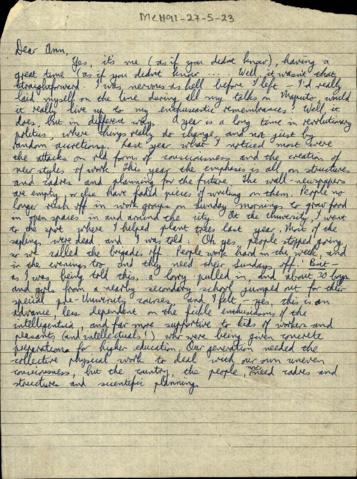 MCH91-27-5-23
Dear Ann,
Yes, it's me (as if you didnt know), having a
great time (as if you didnt know ... Well, it wasn't that
straightforward. I was nervous as hell before I left. I'd really
laid myself on the line during all my talks on Maputo, would
it really live up to my enthusiastic remembrances? Well it
does, but in different ways. A year is a long time in revolutionary
politics, where things really do change, and not just by
random accretions. Last year what I noticed most were
the attacks on old forms of consciousness and the creation of
new styles of work. This year the emphasis is all on structures
and cadres and planning for the future. The wall-newspapers
are empty or else have faded pieces of writing on them. People no
longer rush off in work groups on Sunday mornings to grow food
in open spaces in and around the city. At the University I went
to the spot where I helped plant trees last year. Most of the
saplings were dead and I was told: Oh yes, people stopped going,
so we called the brigades off. People work hard in the week, and
in the evenings too and they need their Sundays off. But -
as I was being told this, a lorry pulled in and about 70 boys
and girls from a nearby secondary school jumped out for their
special pre-University courses, and I felt - yes, this is an
advance, less dependent on the fickle enthusiasms of the
intelligentsia, and far more supportive to kids of workers and
peasants (and intellectuals!) who were being given concrete
preparations for higher education. Our generation needed the
collective physical work to deal with our own uneven
consciousness, but the country, the people, need cadres and
structures and scientific planning.